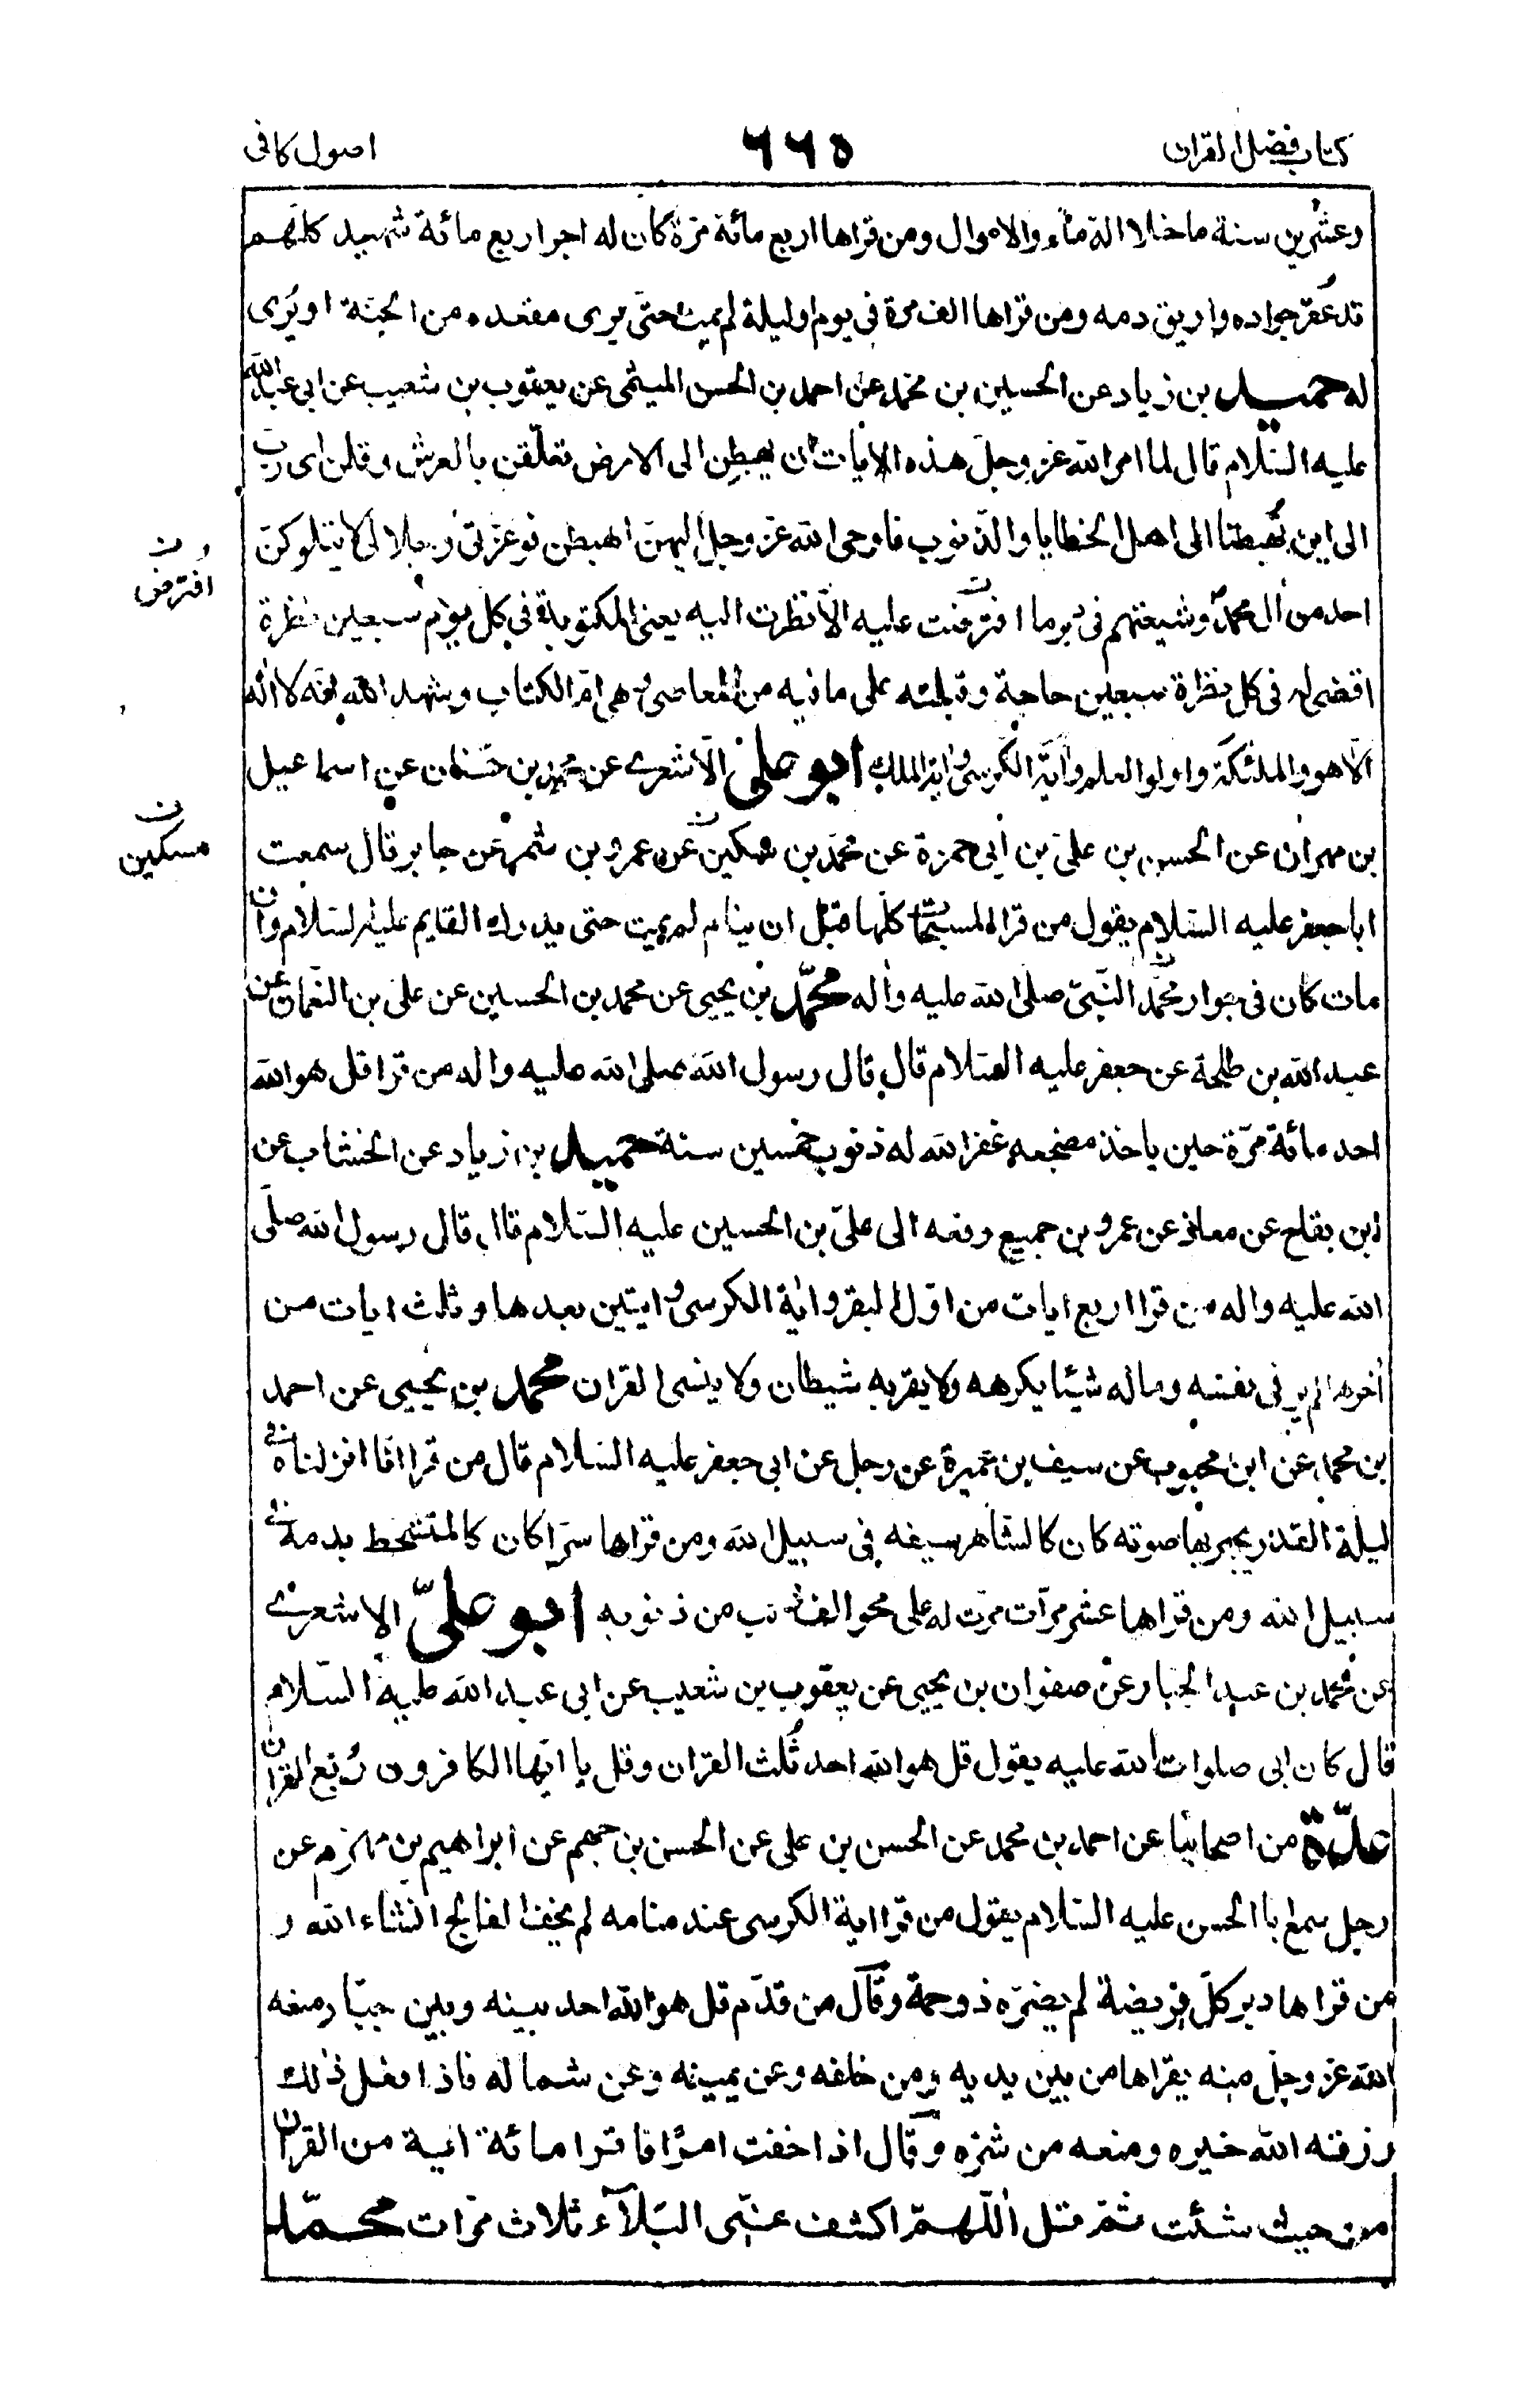 كتاب فضل القران
٦٦٥
اصول كافى
وعشرين سنة ما خلا الدّماء والاموال ومن قراها اربع مائة مرّة كان له اجر اربع مائة شهيد كلّهم
قد عُقر جواده واريق دمه ومن قراها الف مرة فى يوم او ليلة لم يمت حتى يرى مقعده من الجنّة او يُرى
له حميد بن زياد عن الحسين بن محمّد عن احمد بن الحسن الميثمى عن يعقوب بن شعيب عن ابى عبدالله
عليه السّلام قال لما امر الله عزّ وجلّ هذه الايات ان يهبطن الى الارض تعلّقن بالعرش وقلن اى ربّ
الى اين تُهبطنا الى اهل الخطايا والذّنوب فاوحى الله عزّ وجلّ اليهنّ اهبطن فوعزّتى وجلالى لا يتلوكنّ
احد من ال محمّد وشيعتهم فى دبر ما افترضت عليه الّا نظرت اليه بعينى المكنونة فى كل يوم سبعين نظرة
اقضى له فى كل نظرة سبعين حاجة وقبلته على ما فيه من المعاصى وهى امّ الكتاب وشهد الله انّه لا اله
الّا هو والملئكة واولوا العلم واية الكرسى واية الملك ابو علىّ الاشعرى عن محمد بن حسّان عن اسماعيل
بن مهران عن الحسن بن علىّ بن ابى حمزة عن محمّد بن سكين عن عمرو بن شمر عن جابر قال سمعت
ابا جعفر عليه السّلام يقول من قرا المسبّحات كلّها قبل ان ينام لم يمت حتى يدرك القايم عليه السّلام وان
مات كان فى جوار محمّد النّبىّ صلى الله عليه واله محمّد بن يحيى عن محمد بن الحسين عن علىّ بن النّعمان عن
عبد الله بن طلحة عن جعفر عليه السّلام قال قال رسول الله صلى الله عليه واله من قرا قل هو الله
احد مائة مرّة حين ياخذ مضجعه غفر الله له ذنوب خمسين سنة حميد بن زياد عن الخشاب عن
ابن بقاح عن معاذ عن عمرو بن جميع رفعه الى علىّ بن الحسين عليه السّلام قال قال رسول الله صلّى
الله عليه واله من قرا اربع ايات من اوّل البقرة واية الكرسى وايتين بعدها وثلث ايات من
اخرها لم ير فى نفسه وماله شيئا يكرهه ولا يقربه شيطان ولا ينسى القران محمد بن يحيى عن احمد
بن محمد عن ابن محبوب عن سيف بن عميرة عن رجل عن ابى جعفر عليه السّلام قال من قرا انّا انزلناه فى
ليلة القدر يجهر بها صوته كان كالشّاهر سيفه فى سبيل الله ومن قراها سرّا كان كالمتشحط بدمه فى
سبيل الله ومن قراها عشر مرّات مرّت له على محو الف ذنب من ذنوبه ابو علىّ الاشعرى
عن محمّد بن عبد الجبار عن صفوان بن يحيى عن يعقوب بن شعيب عن ابى عبد الله عليه السّلام
قال كان ابى صلوات الله عليه يقول قل هو الله احد ثُلث القران وقل يا ايّها الكافرون رُبع القران
عدّة من اصحابنا عن احمد بن محمد عن الحسن بن على عن الحسن بن جهم عن ابراهيم بن مهزم عن
رجل سمع ابا الحسن عليه السّلام يقول من قرا اية الكرسى عند منامه لم يخف الفالج انشاء الله و
من قراها دبر كلّ فريضة لم يضرّه ذو حمة وقال من قدّم قل هو الله احد بينه وبين جبّار منعه
الله عزّ وجلّ منه يقراها من بين يديه ومن خلفه وعن يمينه وعن شماله فاذا فعل ذلك
رزقه الله خيره ومنعه من شرّه وقال اذا خفت امرًا فاقرا مائة اية من القران
من حيث شئت ثمّ قل اللّهمّ اكشف عنّى البلآء ثلاث مرّات محمّد
افترض
ن
مسكين
ن